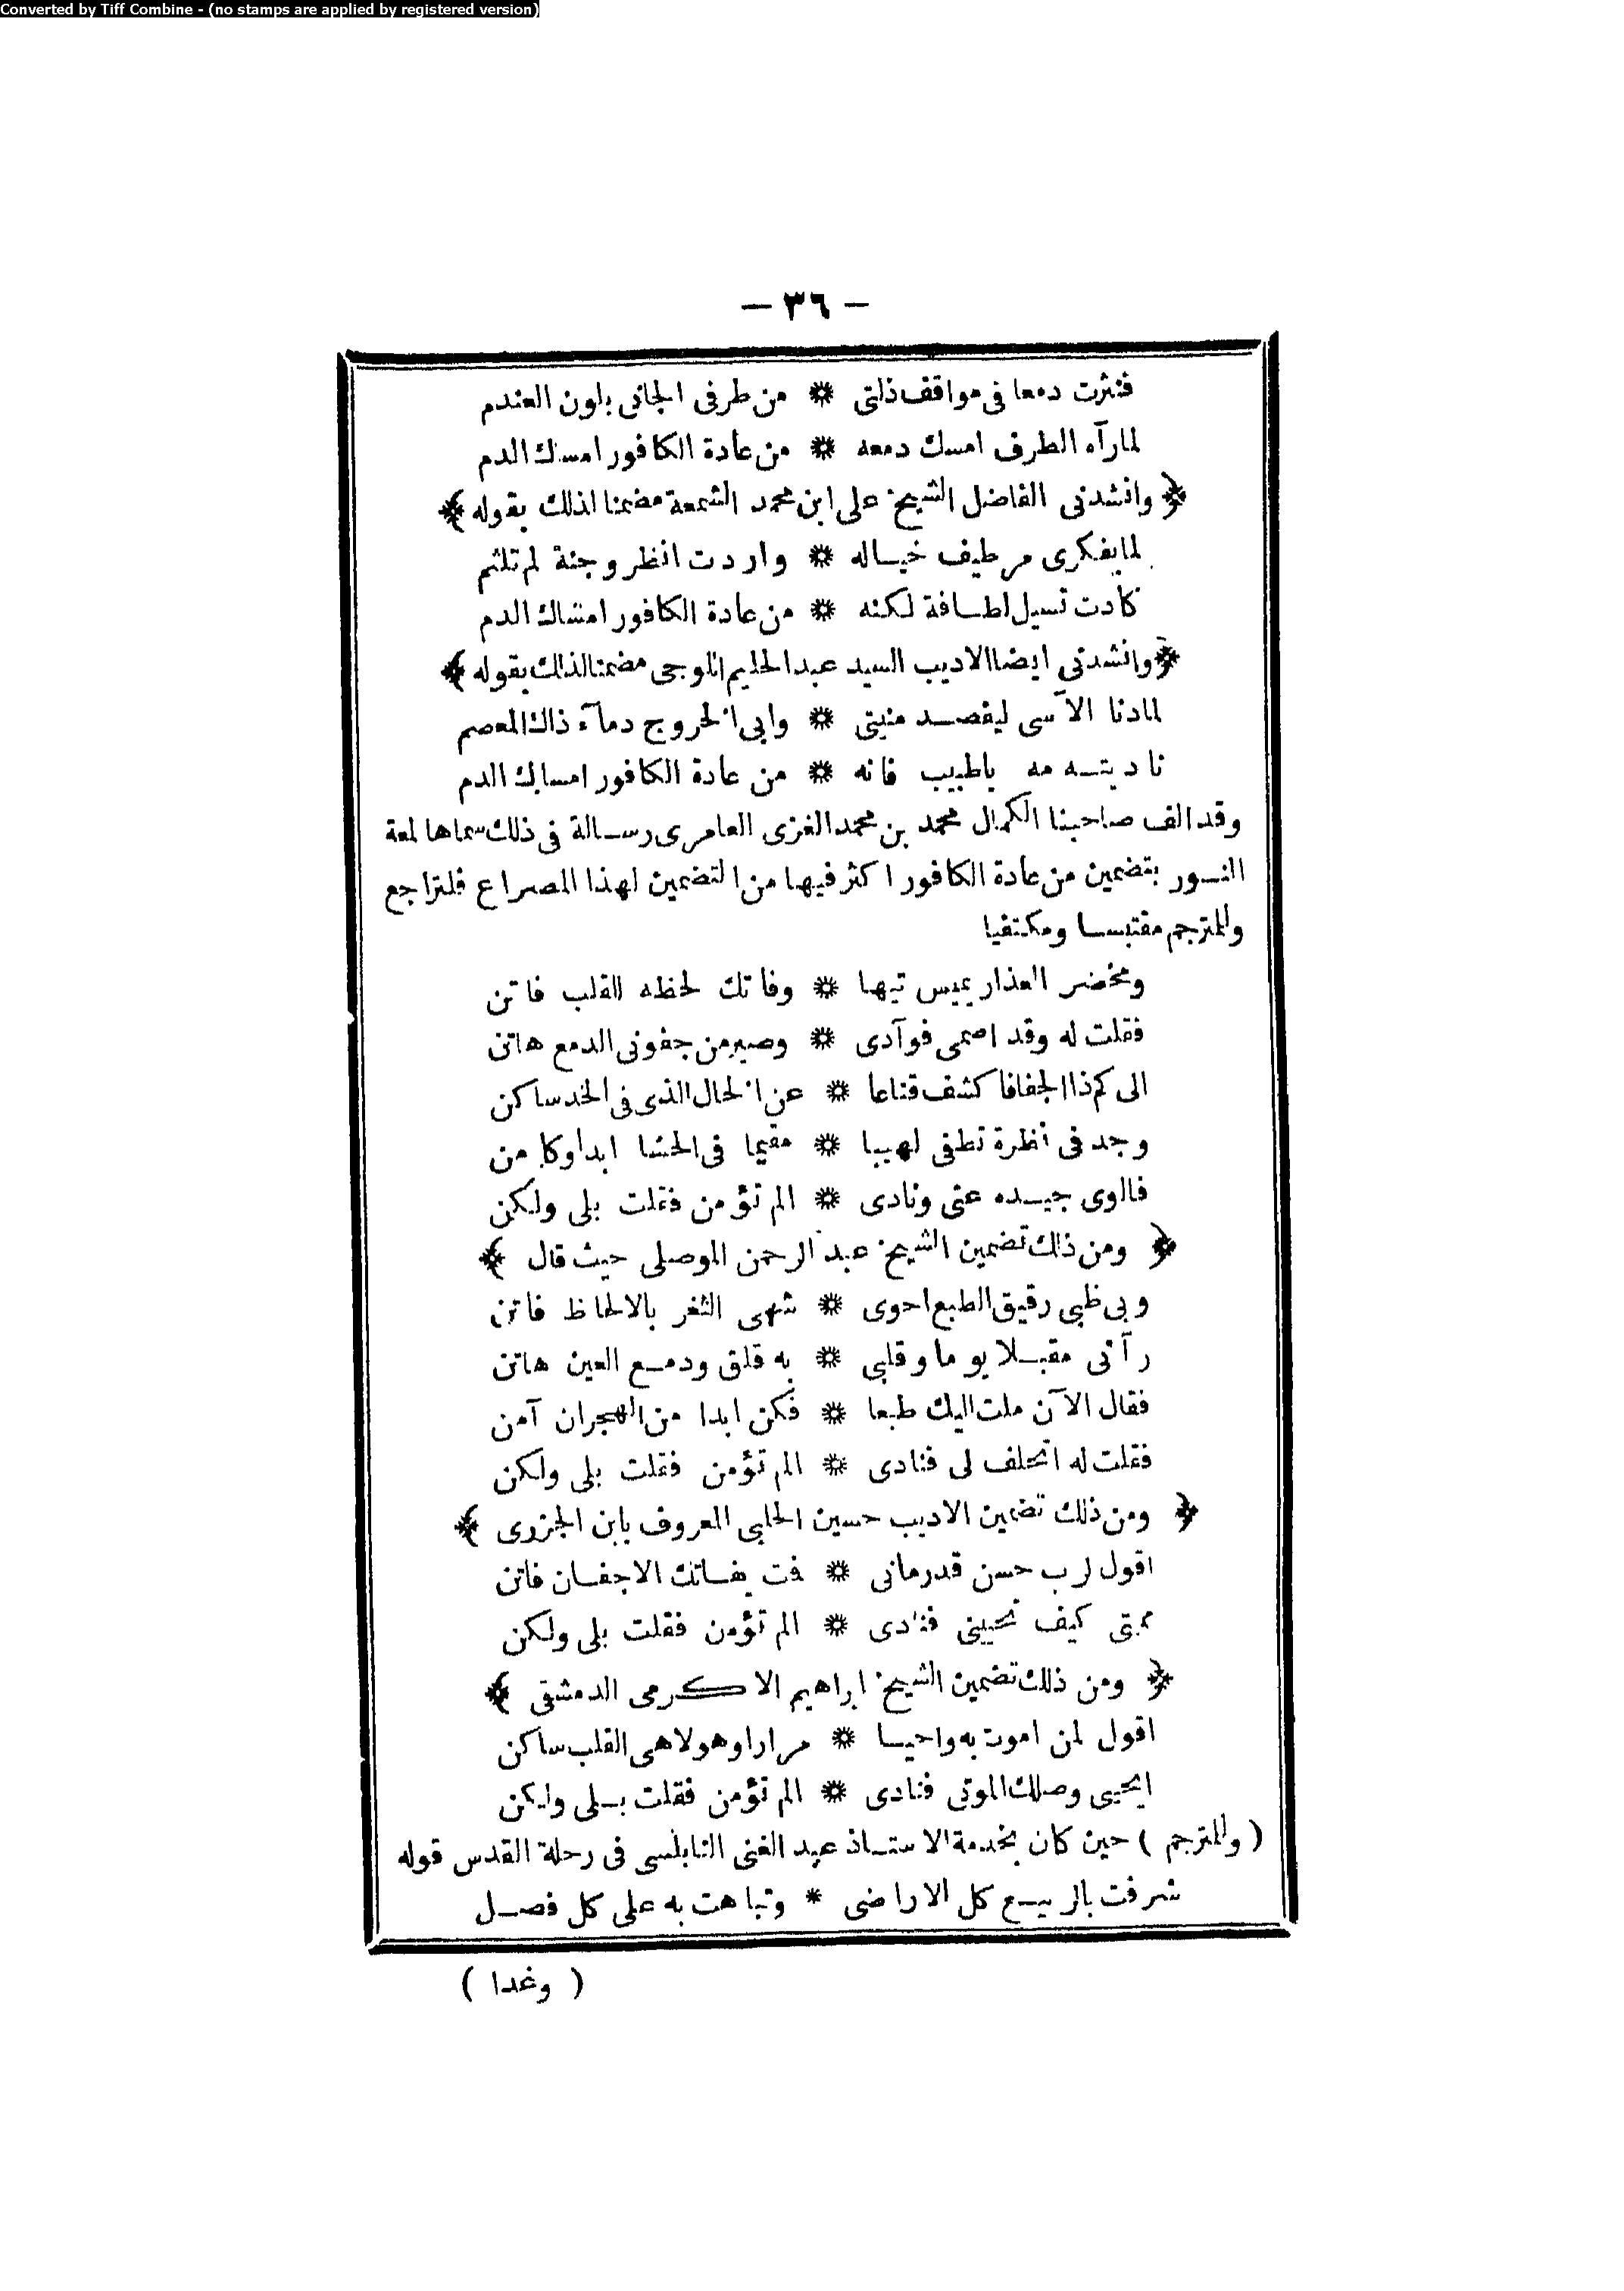 Converted by Tiff Combine - (no stamps are applied by registered version)
— ٣٦ —
فنثرت دمعا فى مواقف ذلتى * من طرفى الجانى بلون العندم
لمارآه الطرف امسك دمعه * من عادة الكافور امساك الدم
﴿ وانشدنى الفاضل الشيخ على ابن محمد الشمعة مضمنا لذلك بقوله ﴾
لما بفكرى مر طيف خياله * واردت انظر وجنة لم تلثم
كادت تسيل لطافة لكنه * من عادة الكافور امساك الدم
﴿ وانشدنى ايضا الاديب السيد عبد الحليم اللوجى مضمنا لذلك بقوله ﴾
لمادنا الآسى ليفصد منيتى * وابى الخروج دمآء ذاك المعصم
ناديته مه ياطبيب فانه * من عادة الكافور امساك الدم
وقد الف صاحبنا الكمال محمد بن محمد الغزى العامرى رسالة فى ذلك سماها لمعة
النور بتضمين من عادة الكافور اكثر فيها من التضمين لهذا المصراع فلتراجع
وللمترجم مقتبسا ومكتفيا
ومخضر العذار يميس تيها * وفاتك لحظه للقلب فاتن
فقلت له وقد اصمى فوآدى * وصير من جفونى الدمع هاتن
الى كم ذا الجفافا كشف قناعا * عن الخال الذى فى الخد ساكن
وجد فى نظرة تطفى لهيبا * مقيما فى الحشا ابدا وكامن
فالوى جيده عنى ونادى * الم تؤمن فقلت بلى ولكن
﴿ ومن ذلك تضمين الشيخ عبد الرحمن الموصلى حيث قال ﴾
وبى ظبى رقيق الطبع احوى * شهى الثغر بالالحاظ فاتن
رآنى مقبلا يوما وقلبى * به قلق ودمع العين هاتن
فقال الآن ملت اليك طبعا * فكن ابدا من الهجران آمن
فقلت له اتحلف لى فنادى * الم تؤمن فقلت بلى ولكن
﴿ ومن ذلك تضمين الاديب حسين الحلبى المعروف بابن الجزرى ﴾
اقول لرب حسن قدرمانى * فت بفاتك الاجفان فاتن
ممتى كيف تحيينى فنادى * الم تؤمن فقلت بلى ولكن
﴿ ومن ذلك تضمين الشيخ ابراهيم الاكرمى الدمشقى ﴾
اقول لمن اموت به واحيا * مرارا وهولاهى القلب ساكن
ايحيى وصلك الموتى فنادى * الم تؤمن فقلت بلى ولكن
( وللمترجم ) حين كان بخدمة الاستاذ عبد الغنى النابلسى فى رحلة القدس قوله
شرفت بالربيع كل الاراضى * وتباهت به على كل فصل
( وغدا )